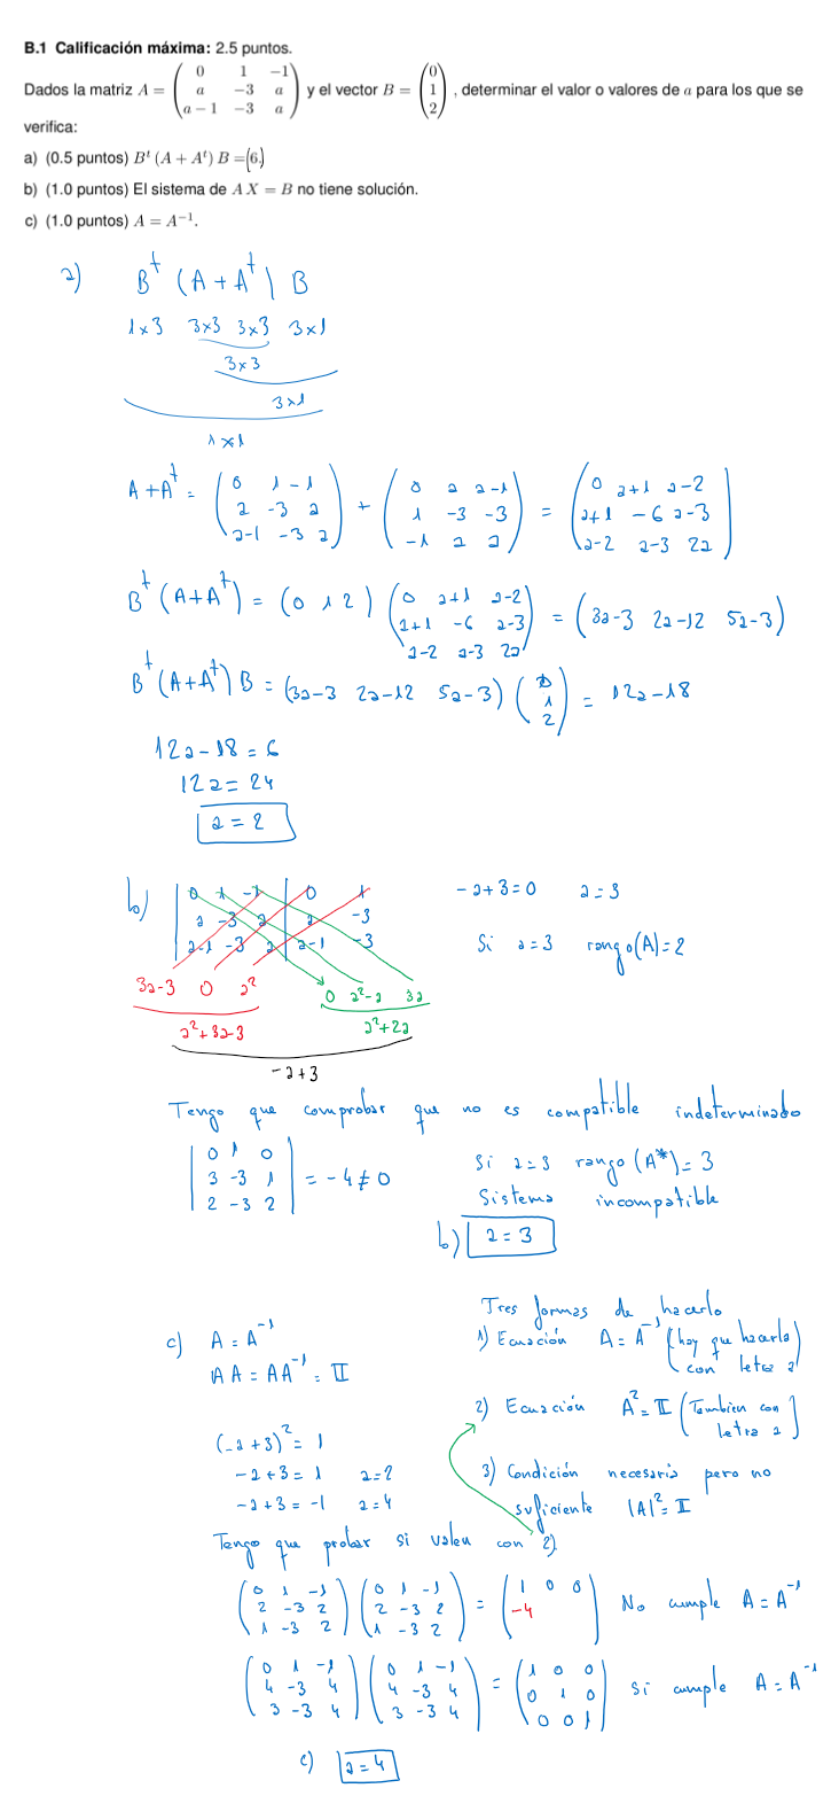 B.1 Calificación máxima: 2.5 puntos.
Dados la matriz A = ( 0 1 −1 ; a −3 a ; a − 1 −3 a ) y el vector B = ( 0 ; 1 ; 2 ) , determinar el valor o valores de a para los que se
verifica:
a) (0.5 puntos) Bᵗ (A + Aᵗ) B = (6)
b) (1.0 puntos) El sistema de A X = B no tiene solución.
c) (1.0 puntos) A = A⁻¹.
a) Bᵗ (A + Aᵗ) B
1x3 3x3 3x3 3x1
3x3
3x1
1x1
A + Aᵗ = ( 0 1 -1 ; a -3 a ; a-1 -3 a ) + ( 0 a a-1 ; 1 -3 -3 ; -1 a a ) = ( 0 a+1 a-2 ; a+1 -6 a-3 ; a-2 a-3 2a )
Bᵗ (A+Aᵗ) = (0 1 2) ( 0 a+1 a-2 ; a+1 -6 a-3 ; a-2 a-3 2a ) = (3a-3 2a-12 5a-3)
Bᵗ (A+Aᵗ) B = (3a-3 2a-12 5a-3) ( 0 ; 1 ; 2 ) = 12a-18
12a-18 = 6
12a = 24
a = 2
b) | 0 1 -1 | 0 1
a -3 a | a -3
a-1 -3 a | a-1 -3
3a-3 0 a² 0 a²-a 3a
a²+3a-3 a²+2a
-a+3
-a+3=0 a=3
Si a=3 rango(A)=2
Tengo que comprobar que no es compatible indeterminado
| 0 1 0 ; 3 -3 1 ; 2 -3 2 | = -4 ≠ 0
Si a=3 rango (A*)=3
Sistema incompatible
b) a = 3
c) A = A⁻¹
AA = AA⁻¹ = II
Tres formas de hacerlo
1) Ecuación A = A⁻¹ (hay que hacerlo con letra a)
2) Ecuación A² = II (Tambien con letra a)
3) Condición necesaria pero no
suficiente |A|² = I
(-a+3)² = 1
-a+3 = 1 a=2
-a+3 = -1 a=4
Tengo que probar si valen con 2)
( 0 1 -1 ; 2 -3 2 ; 1 -3 2 ) ( 0 1 -1 ; 2 -3 2 ; 1 -3 2 ) = ( 1 0 0 ; -4 ) No cumple A = A⁻¹
( 0 1 -1 ; 4 -3 4 ; 3 -3 4 ) ( 0 1 -1 ; 4 -3 4 ; 3 -3 4 ) = ( 1 0 0 ; 0 1 0 ; 0 0 1 ) Si cumple A = A⁻¹
c) a = 4